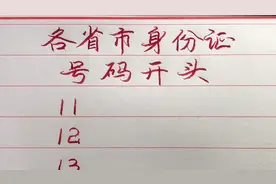 各省市身份证
号码开头
11
12
13